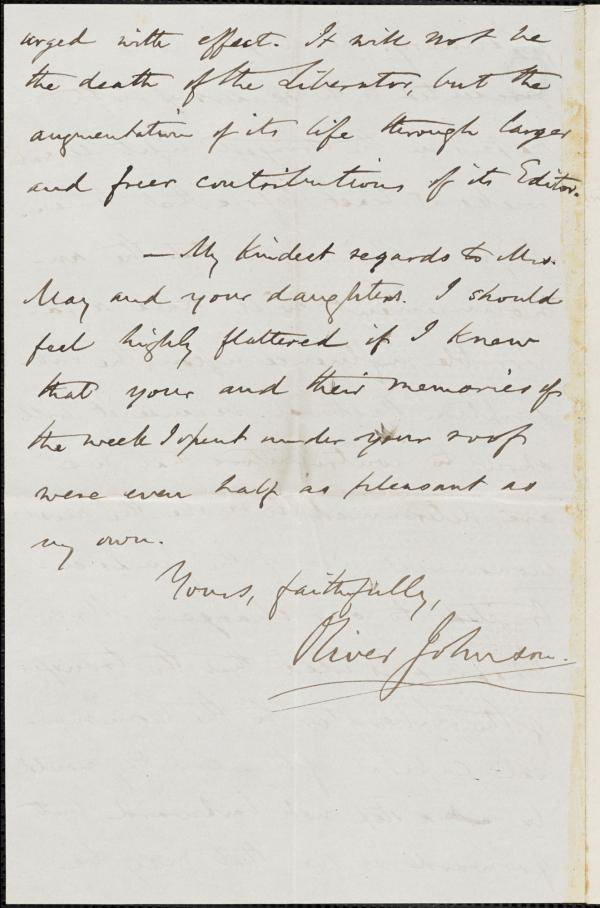 urged with effect. It will not be
the death of the Liberator, but the
augmentation of its life through larger
and freer contributions of its Editor.
— My kindest regards to Mrs.
May and your daughters. I should
feel highly flattered if I knew
that your and their memories of
the week I spent under your roof
were even half as pleasant as
my own.
Yours, faithfully,
Oliver Johnson.